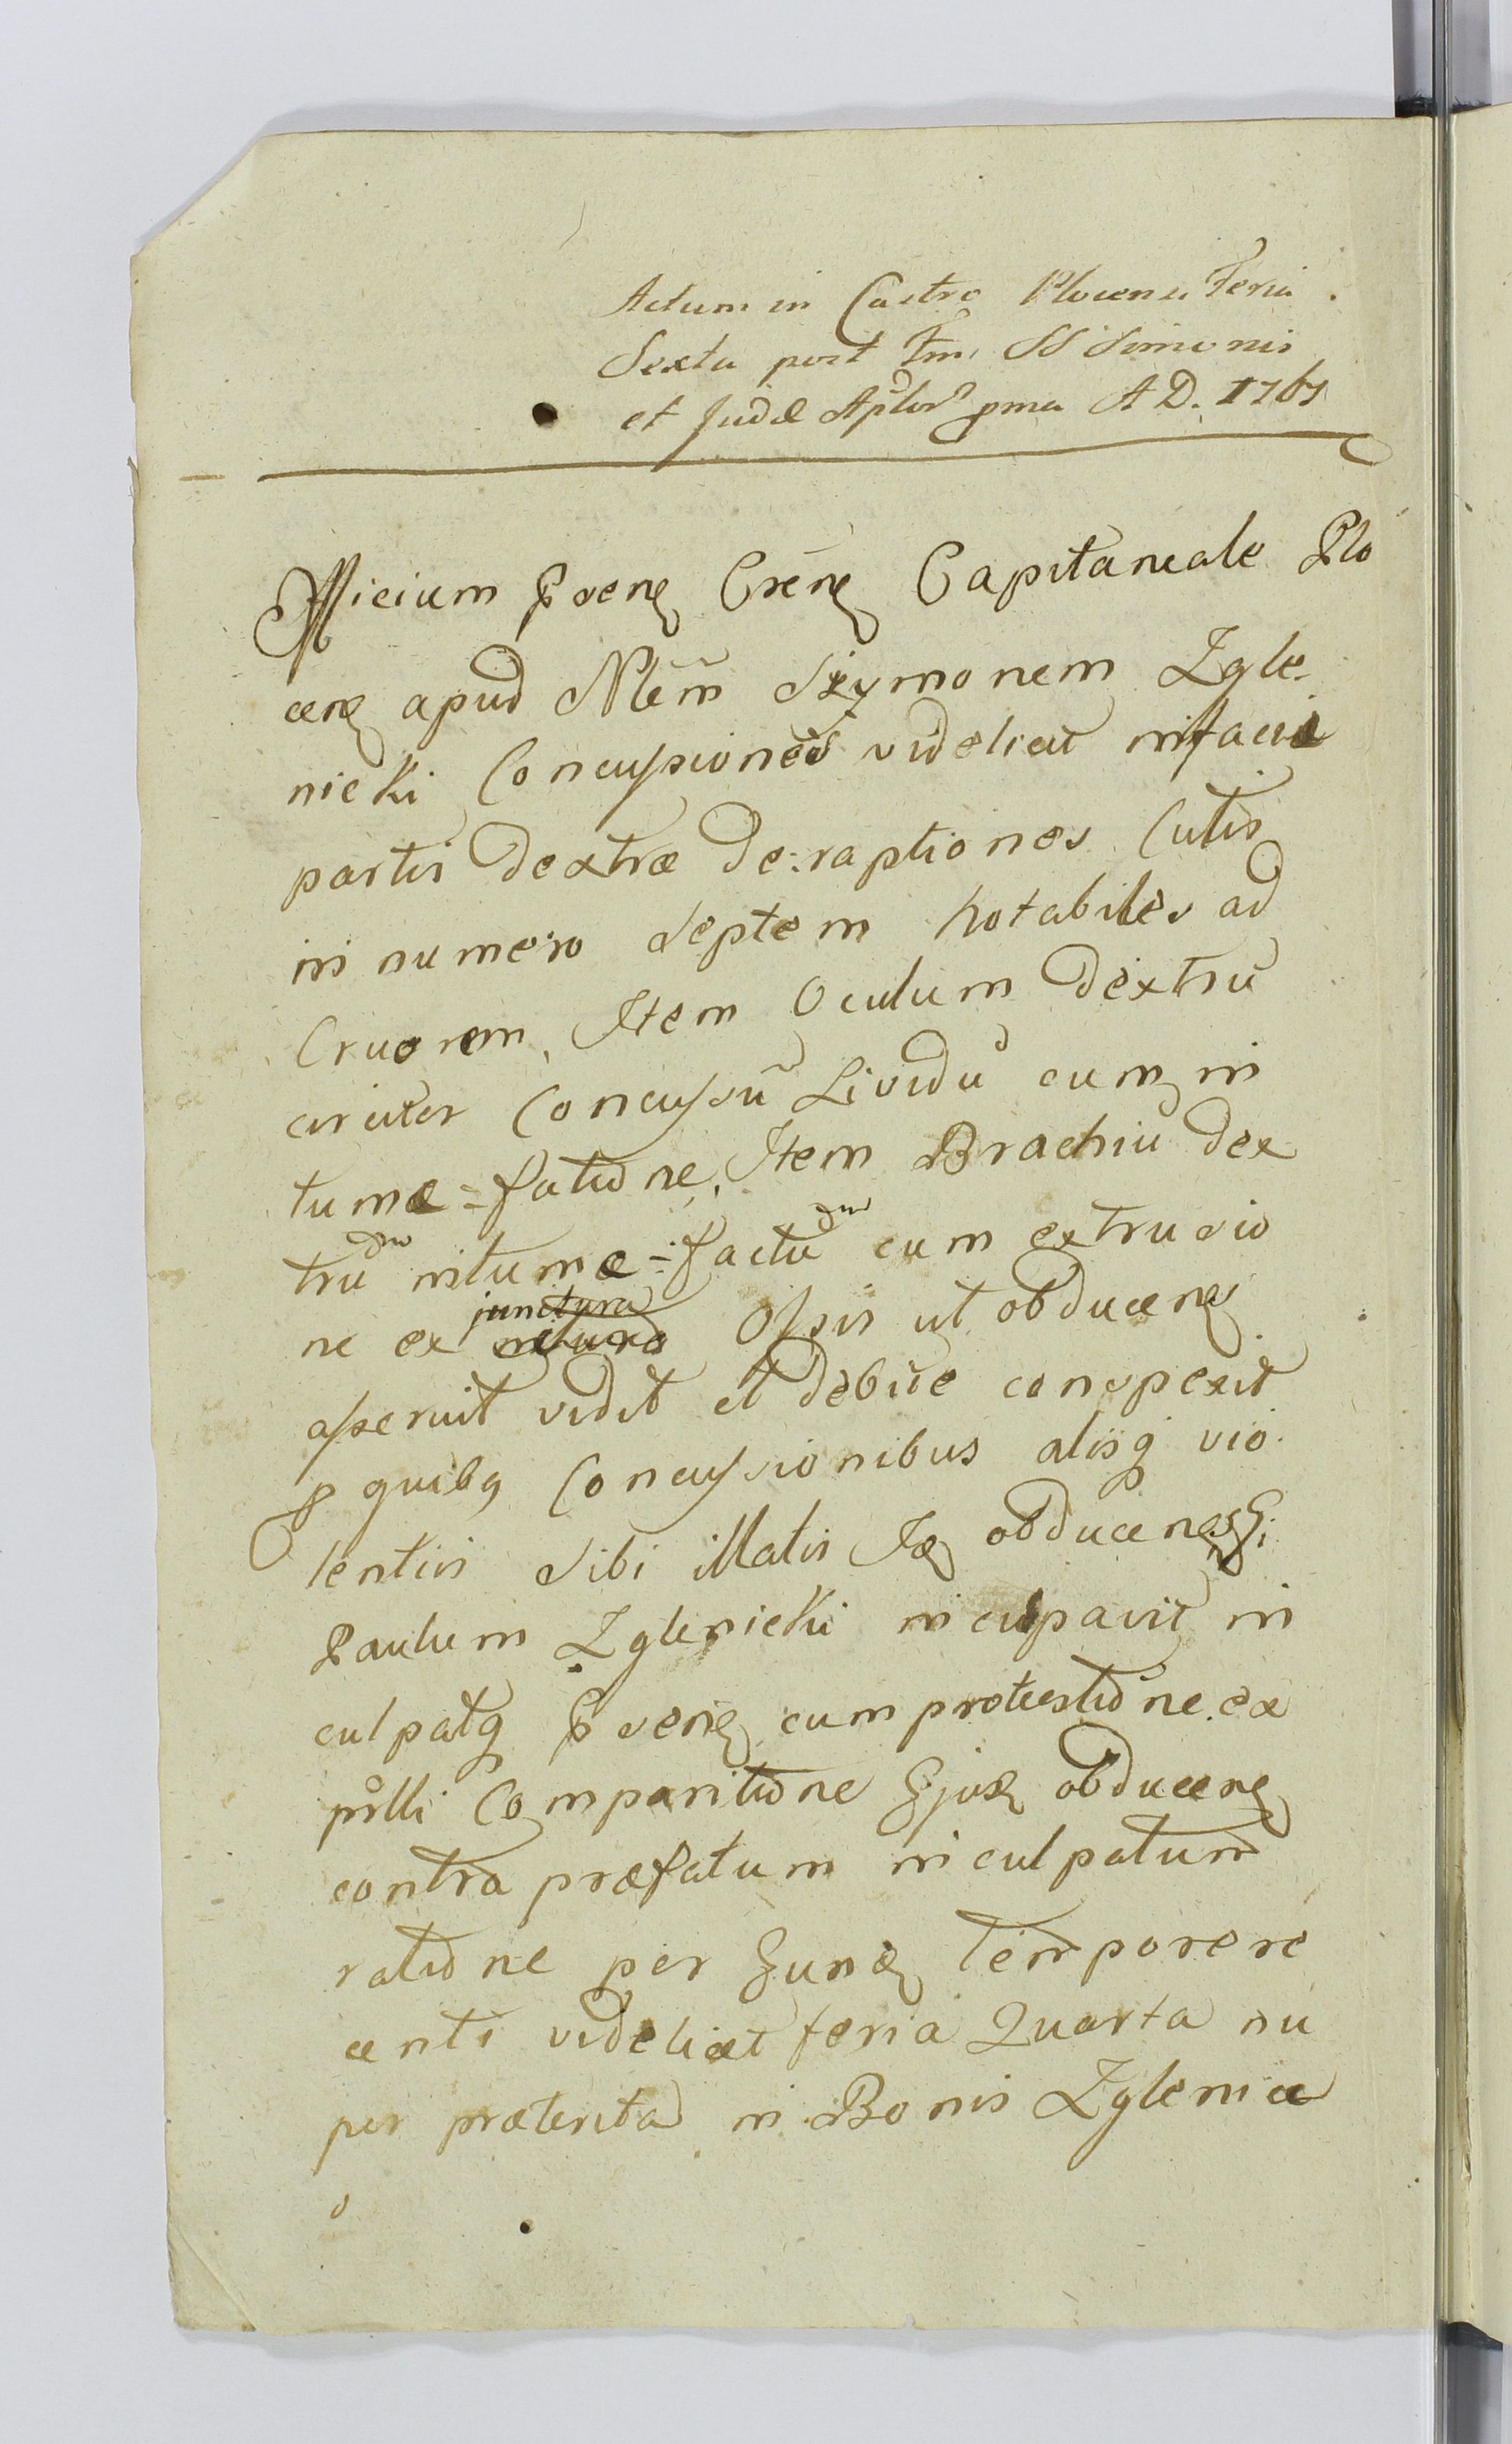 Actum in Castro Plocensi Feria
Sexta post Ftm SS Simonis
et Judæ Aplor pma A D. 1767
Officium Præns Crēns Capitaneale Plo
cens apud Nlēm Szymonem Zgle.
nicki Concussiones videlicet in facie
partis dextræ de:raptiones Cutis
in numero Septem notabiles ad
Cruorem, Item Oculum dextrū
circiter Concussū Lividū cum in
tumæ=factione, Item Brachiū dex
trū intumæ=factū cum extrusio
ne ex junctura Ossis ut obducens
asseruit vidit et debite conspexit
p quibq Concussionibus aliisq vio.
lentiis Sibi illatis Id obducens G:
Paulum Zglenicki inculpavit in
culpatq præns cum protestione ex
pslli Comparitione Ejusd obducens
contra præfatum inculpatum
ratione per Eund tempore re
centi videlicet feria Quarta nu
per præterita in Bonis Zglenice